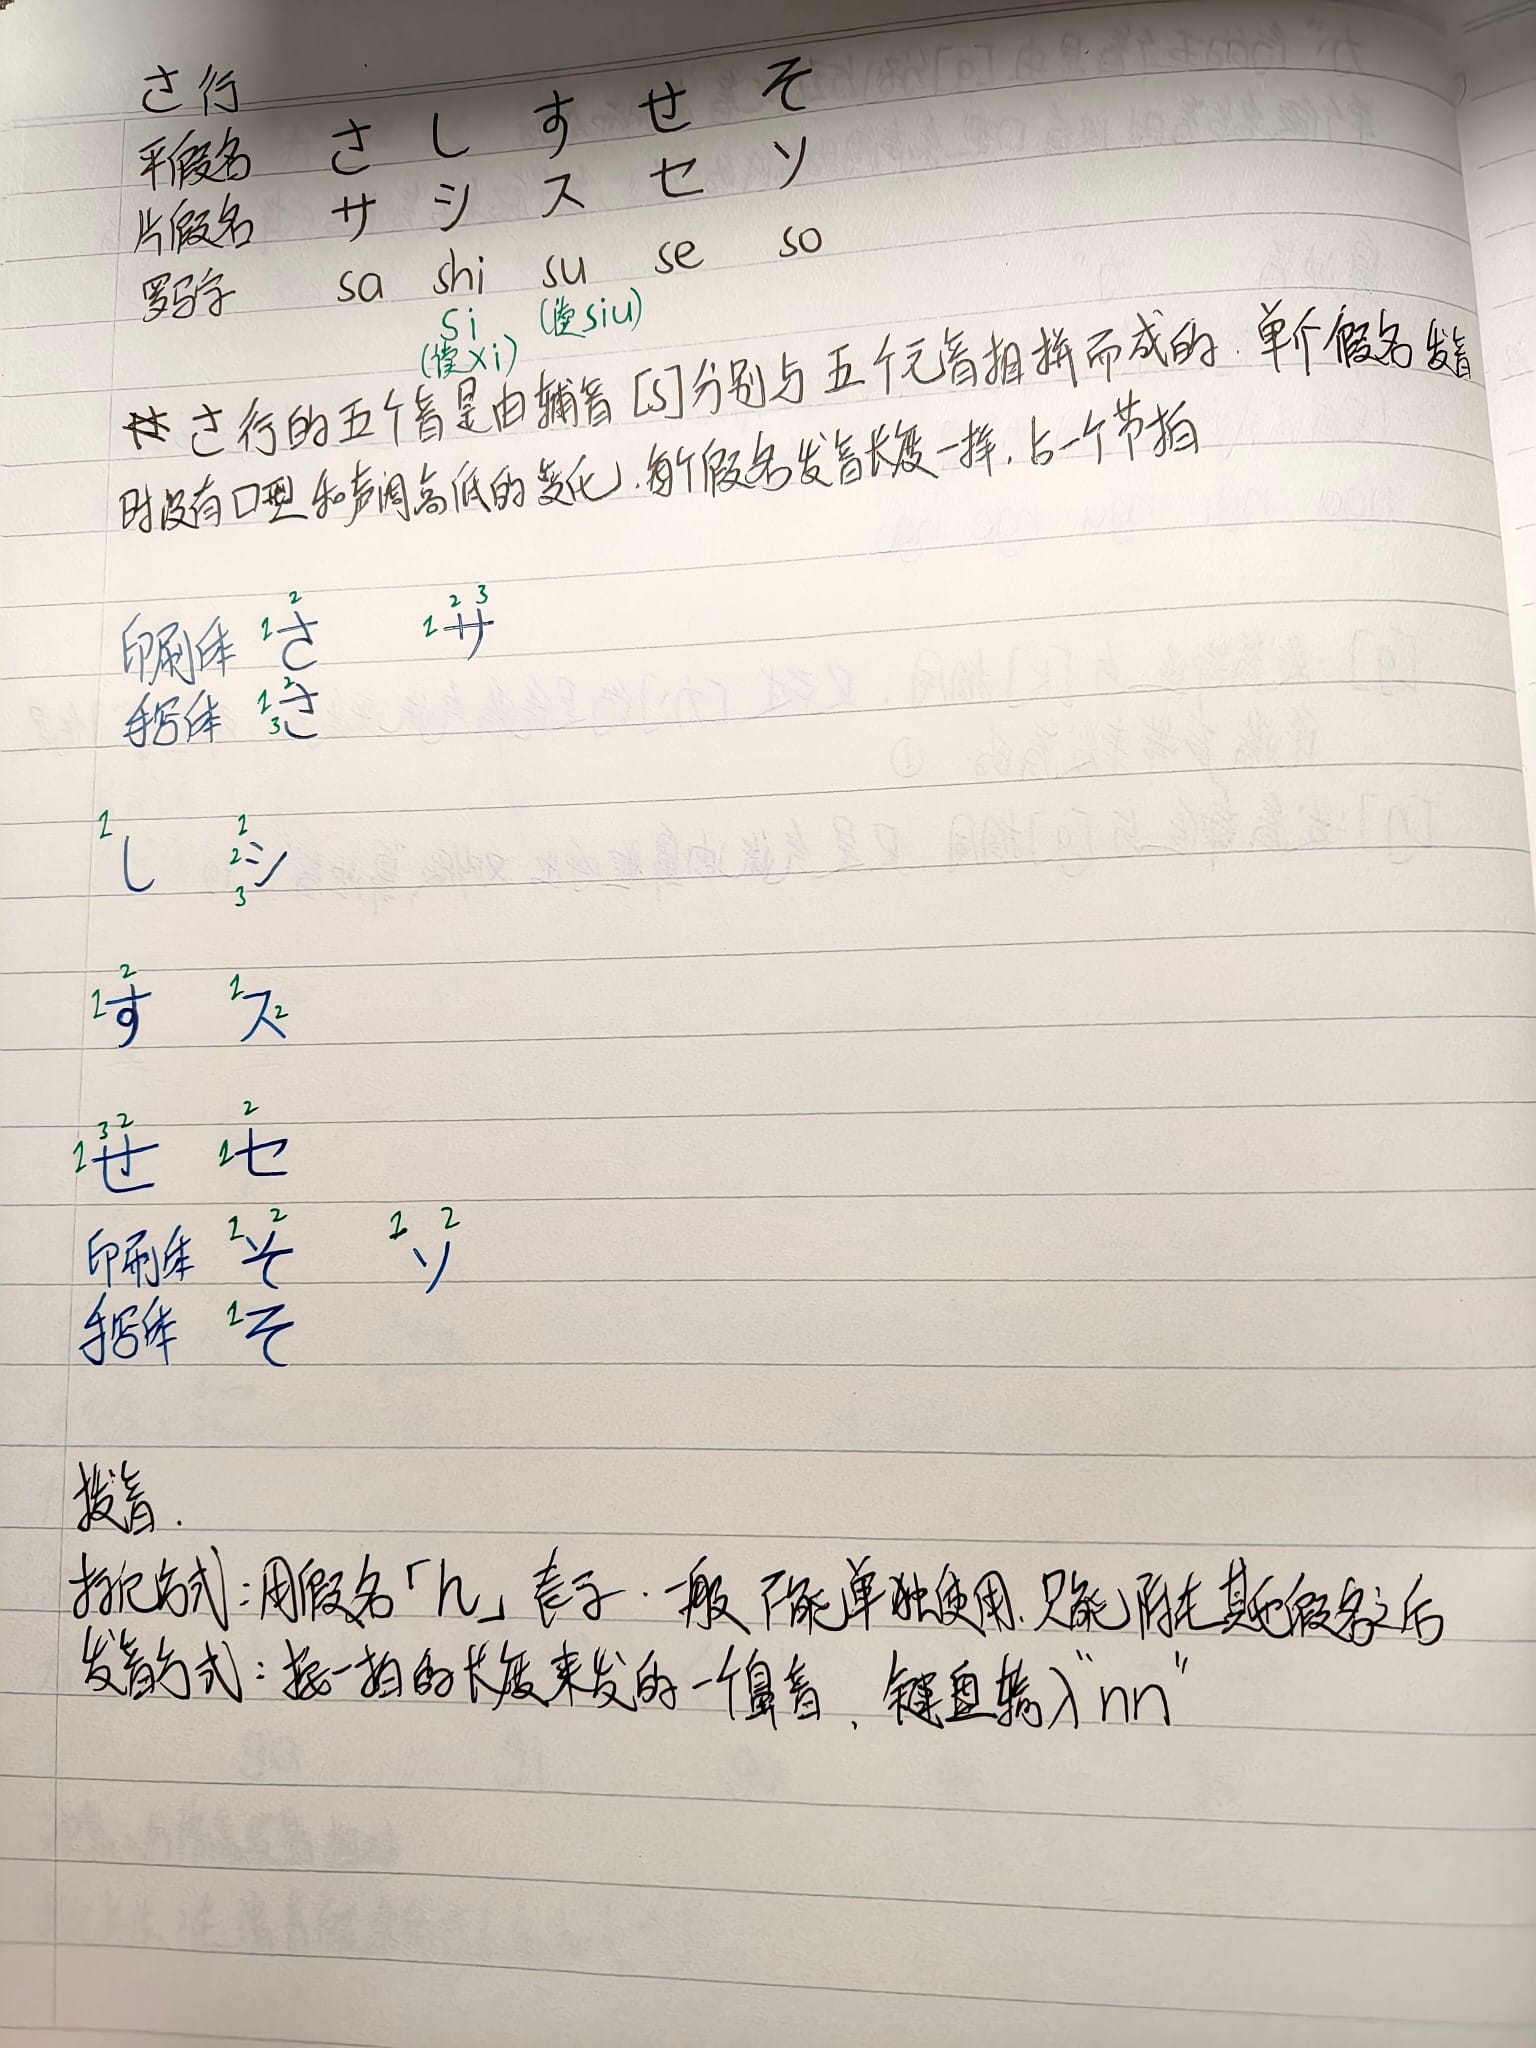 さ行
平假名 さ し す せ そ
片假名 サ シ ス セ ソ
罗马字 sa shi su se so
si (读siu)
(读xi)
さ行的五个音是由辅音[s]分别与五个元音相拼而成的.单个假名发音
时没有口型和声调高低的变化,每个假名发音长度一样,占一个节拍
2 2 3
印刷体 1 さ 1 サ
手写体 1 2 3 さ
1 し 1 2 3 シ
1 2 す 1 2 ス
1 3 2 せ 1 2 セ
印刷体 1 2 そ 1 2 ソ
手写体 1 そ
拨音.
标记方式:用假名「ん」表示.一般不能单独使用,只能附在其他假名之后
发音方式:按一拍的长度来发的一个鼻音,键盘输入"nn"